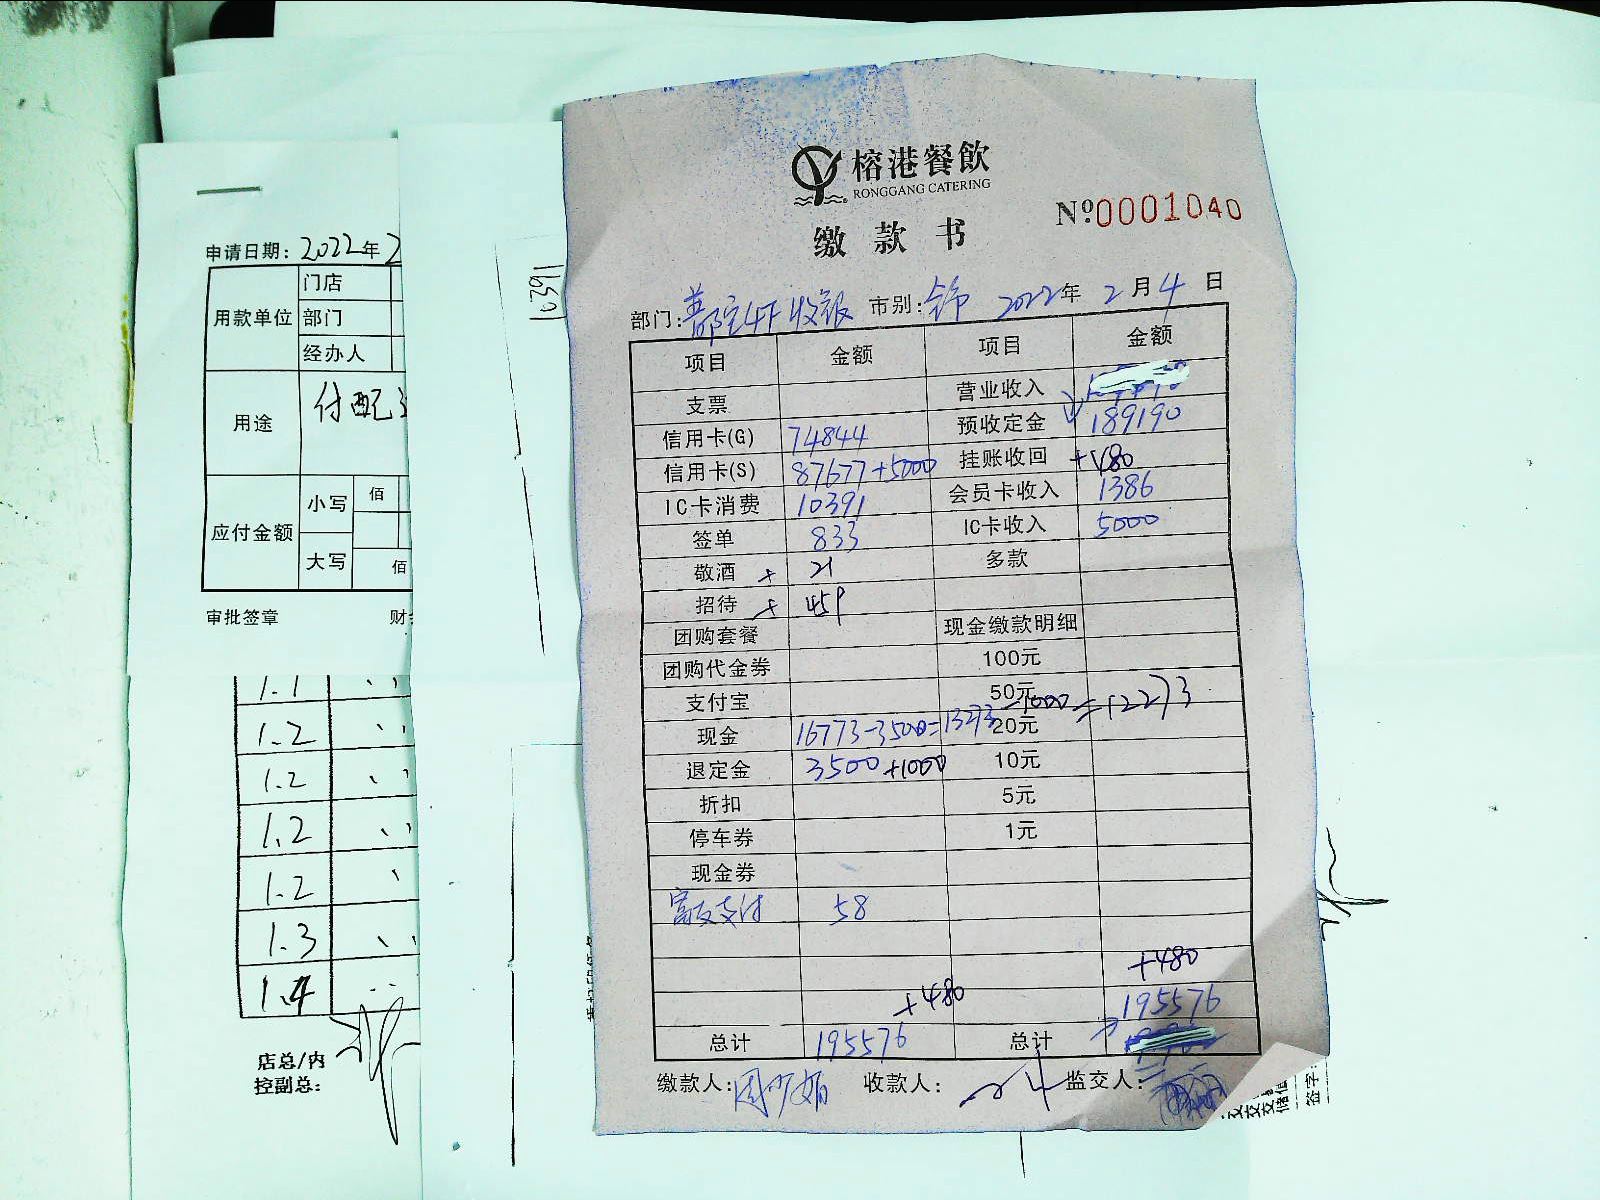 榕港餐飲
RONGGANG CATERING
№0001040
缴款书
部门: 4F 收银 市别: 2022年 2月4日
项目 金额 项目 金额
支票 营业收入
信用卡(G) 74844 预收定金 189190
信用卡(S) 87677+5000 挂账收回 +480
IC卡消费 10391 会员卡收入 1386
签单 833 IC卡收入 5000
敬酒 + 21 多款
招待 + 459
团购套餐 现金缴款明细
团购代金券 100元
支付宝 50元
现金 16773-3500=13273-1000=12273 20元
退定金 3500+1000 10元
折扣 5元
停车券 1元
现金券
富友支付 58
+480
+480
195576
总计 195576 总计
缴款人: 收款人: 监交人:
申请日期: 2022年2
用款单位 门店
部门
经办人
用途 付配
应付金额 小写 佰
大写 佰
审批签章 财
1.1
1.2
1.2
1.2
1.2
1.3
1.4
店总/内
控副总:
11659
签字: